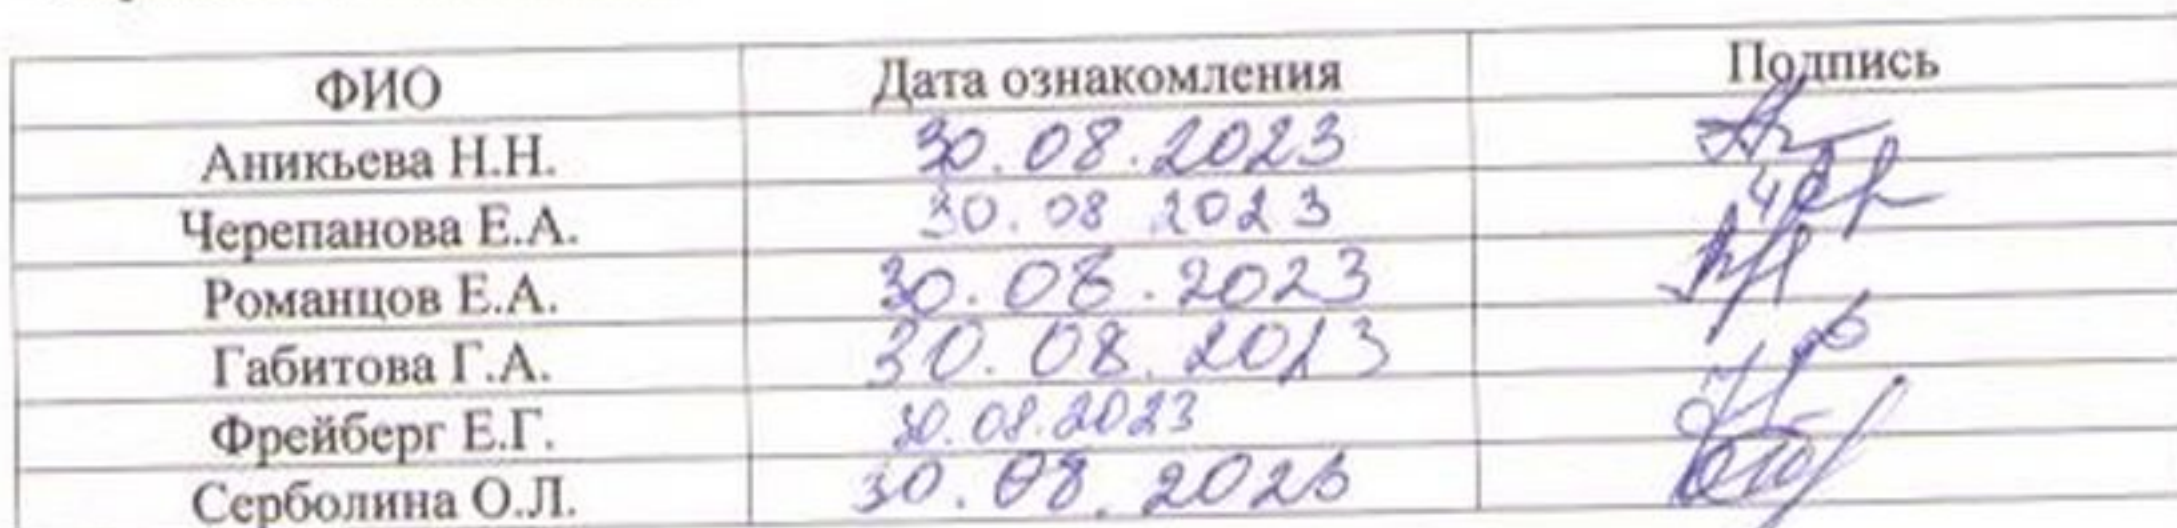 ФИО Дата ознакомления Подпись
Аникьева Н.Н. 30.08.2023
Черепанова Е.А. 30.08 2023
Романцов Е.А. 30.08.2023
Габитова Г.А. 30.08.2023
Фрейберг Е.Г. 30.08.2023
Серболина О.Л. 30.08.2023